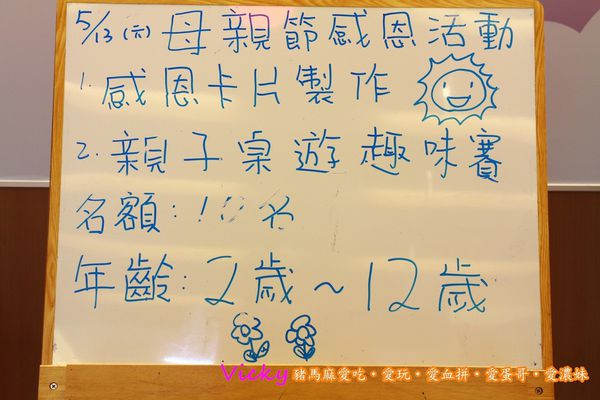 5/13(六) 母親節感恩活動
1. 感恩卡片製作
2. 親子桌遊趣味賽
名額: 名
年齡: 2歲~12歲
Vicky 豬馬麻愛吃・愛玩・愛血拼・愛蛋哥・愛濃妹